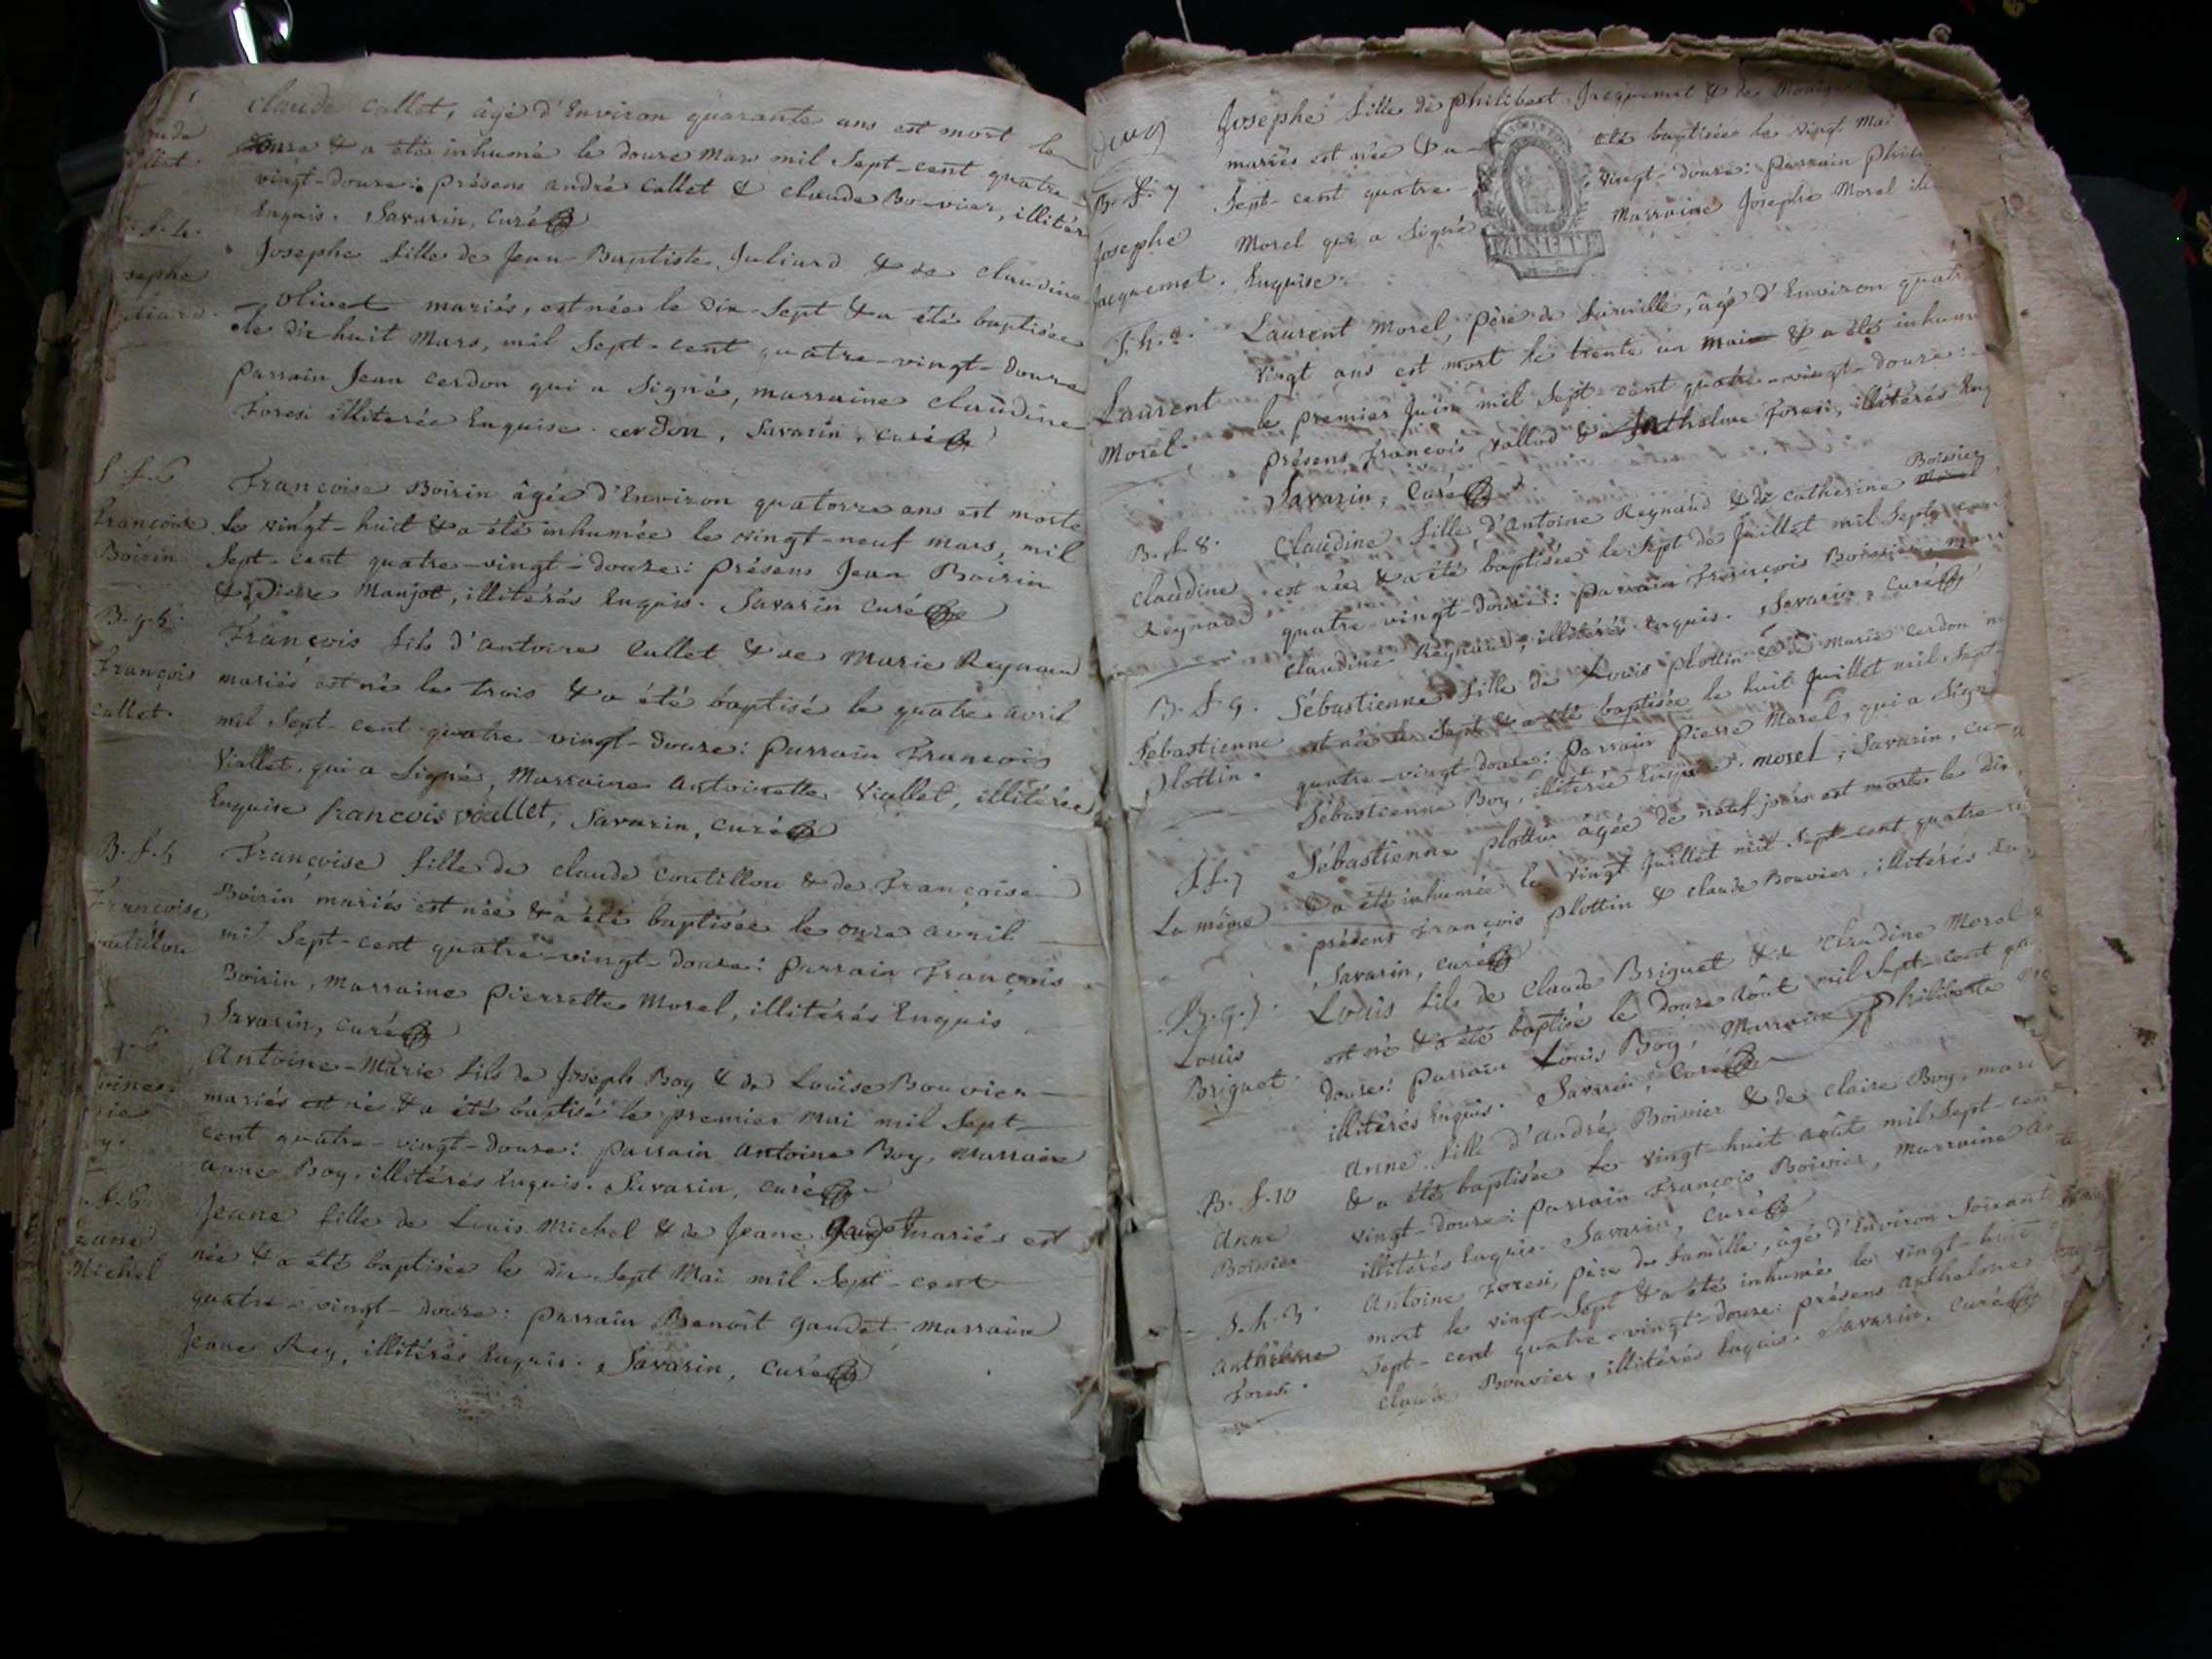 Claude Callet, âgé d'Environ quarante ans est mort le
onze & a été inhumé le douze Mars mil Sept-cent quatre-
vingt-douze: présens andré Callet & Claude Bouvier, illitér
Enquis. Savarin, curé
B. f. 4.
Josephe fille de Jean-Baptiste Juliard & de Claudine
olivet mariés, est née le dix-Sept & a été baptisée
le dix huit Mars, mil Sept-cent quatre-vingt-Douze
parrain Jean cerdon qui a Signé, marraine Claudine
Foresi illiterée Enquise. cerdon, Savarin, curé
S. f. 6
Françoise
Boirin
Françoise Boirin âgée d'Environ quatorze ans est morte
le vingt-huit & a été inhumée le vingt-neuf mars, mil
Sept-cent quatre-vingt-douze: présens Jean Boirin
& pierre Manjot, illitérés Enquis. Savarin curé
B. g. 5.
François
callet.
François fils d'antoine Callet & de Marie Reynaud
mariés est né le trois & a été baptisé le quatre avril
mil Sept-cent quatre-vingt-douze: parrain François
Viallet, qui a Signé, Marraine antoinette Viallet, illitérée
Enquise francois viallet, Savarin, curé
B. f. 5
Françoise
coutillou
Françoise fille de claude coutillou & de Françoise
Boirin mariés est née & a été baptisée le onze avril
mil Sept-cent quatre-vingt-douze: parrain François
Boirin, marraine pierrette Morel, illitérés Enquis
Savarin, curé
Antoine-Marie fils de Joseph Boy & de Louise Bouvier
mariés est né & a été baptisé le premier mai mil Sept-
cent quatre-vingt-douze: parrain antoine Boy, marraine
anne Boy, illitérés Enquis. Savarin, curé
B. f. 6.
Jeane
Michel
Jeane fille de Louis Michel & de Jeane mariés est
née & a été baptisée le dix-Sept Mai mil Sept-cent
quatre-vingt-douze: parrain Benoît gaudet, marraine
Jeane Rey, illitérés Enquis. Savarin, curé
deux
B. f. 7
Josephe
Jacquemet.
Josephe fille de philibert Jacquemet & de
mariés est née & a été baptisée le vingt Mai
Sept-cent quatre-vingt-douze: parrain
Morel qui a Signé Marraine Josephe Morel
Enquise.
S. h. 2.
Laurent
Morel.
Laurent Morel, père de famille, âgé d'Environ quatre
vingt ans est mort le trente un mai & a été inhumé
le premier Juin mil Sept-cent quatre-vingt-douze:
présens François vallod & Anthelme Foresi, illitérés Enq
Savarin, curé
B. f. 8.
Claudine
Reynaud
Claudine fille d'antoine Reynaud & de catherine Boissier
est née & a été baptisée le Sept de Juillet mil Sept-cent
quatre-vingt-douze: parrain François Boissier, marr
Claudine Reynaud, illitérés Enquis. Savarin, curé
B. f. 9.
Sébastienne
plottin.
Sébastienne fille de Louis plottin & de Marie cerdon
est née le Sept & a été baptisée le huit Juillet mil Sept-
quatre-vingt-douze: parrain pierre Morel, qui a Signé
Sébastienne Boy, illitérée Enquise. morel, Savarin, cu
S. f. 7
La même
Sébastienne plottin âgée de neuf jours est morte le dix
& a été inhumée le vingt Juillet mil Sept-cent quatre-
présens François plottin & claude Bouvier, illitérés
Savarin, curé
B. g. 7.
Louis
Briguet
Louis fils de Claude Briguet & de Claudine Morel
est né & a été baptisé le douze août mil Sept-cent
douze: parrain Louis Boy, Marraine philiberte
illitérés Enquis. Savarin, curé
B. f. 10
Anne
Boissier
Anne fille d'andré Boissier & de Claire Boy, mari
& a été baptisée le vingt-huit août mil Sept-cen
vingt-douze: parrain François Boissier, Marraine
illitérés Enquis. Savarin, curé
S. h. 3.
Anthelme
Foresi.
Antoine Foresi, père de famille, âgé d'Environ Soixant
mort le vingt-Sept & a été inhumé le vingt-huit
Sept-cent quatre-vingt-douze: présens anthelme
Claude Bouvier, illitérés Enquis. Savarin, curé